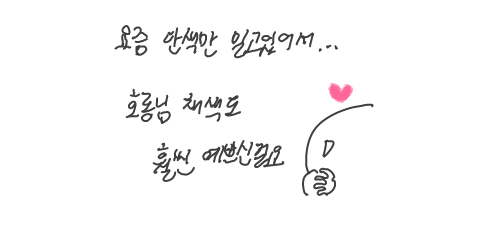 요즘 단색만 밀고있어서...
호롱님 채색도
훨씬 예쁘신걸요